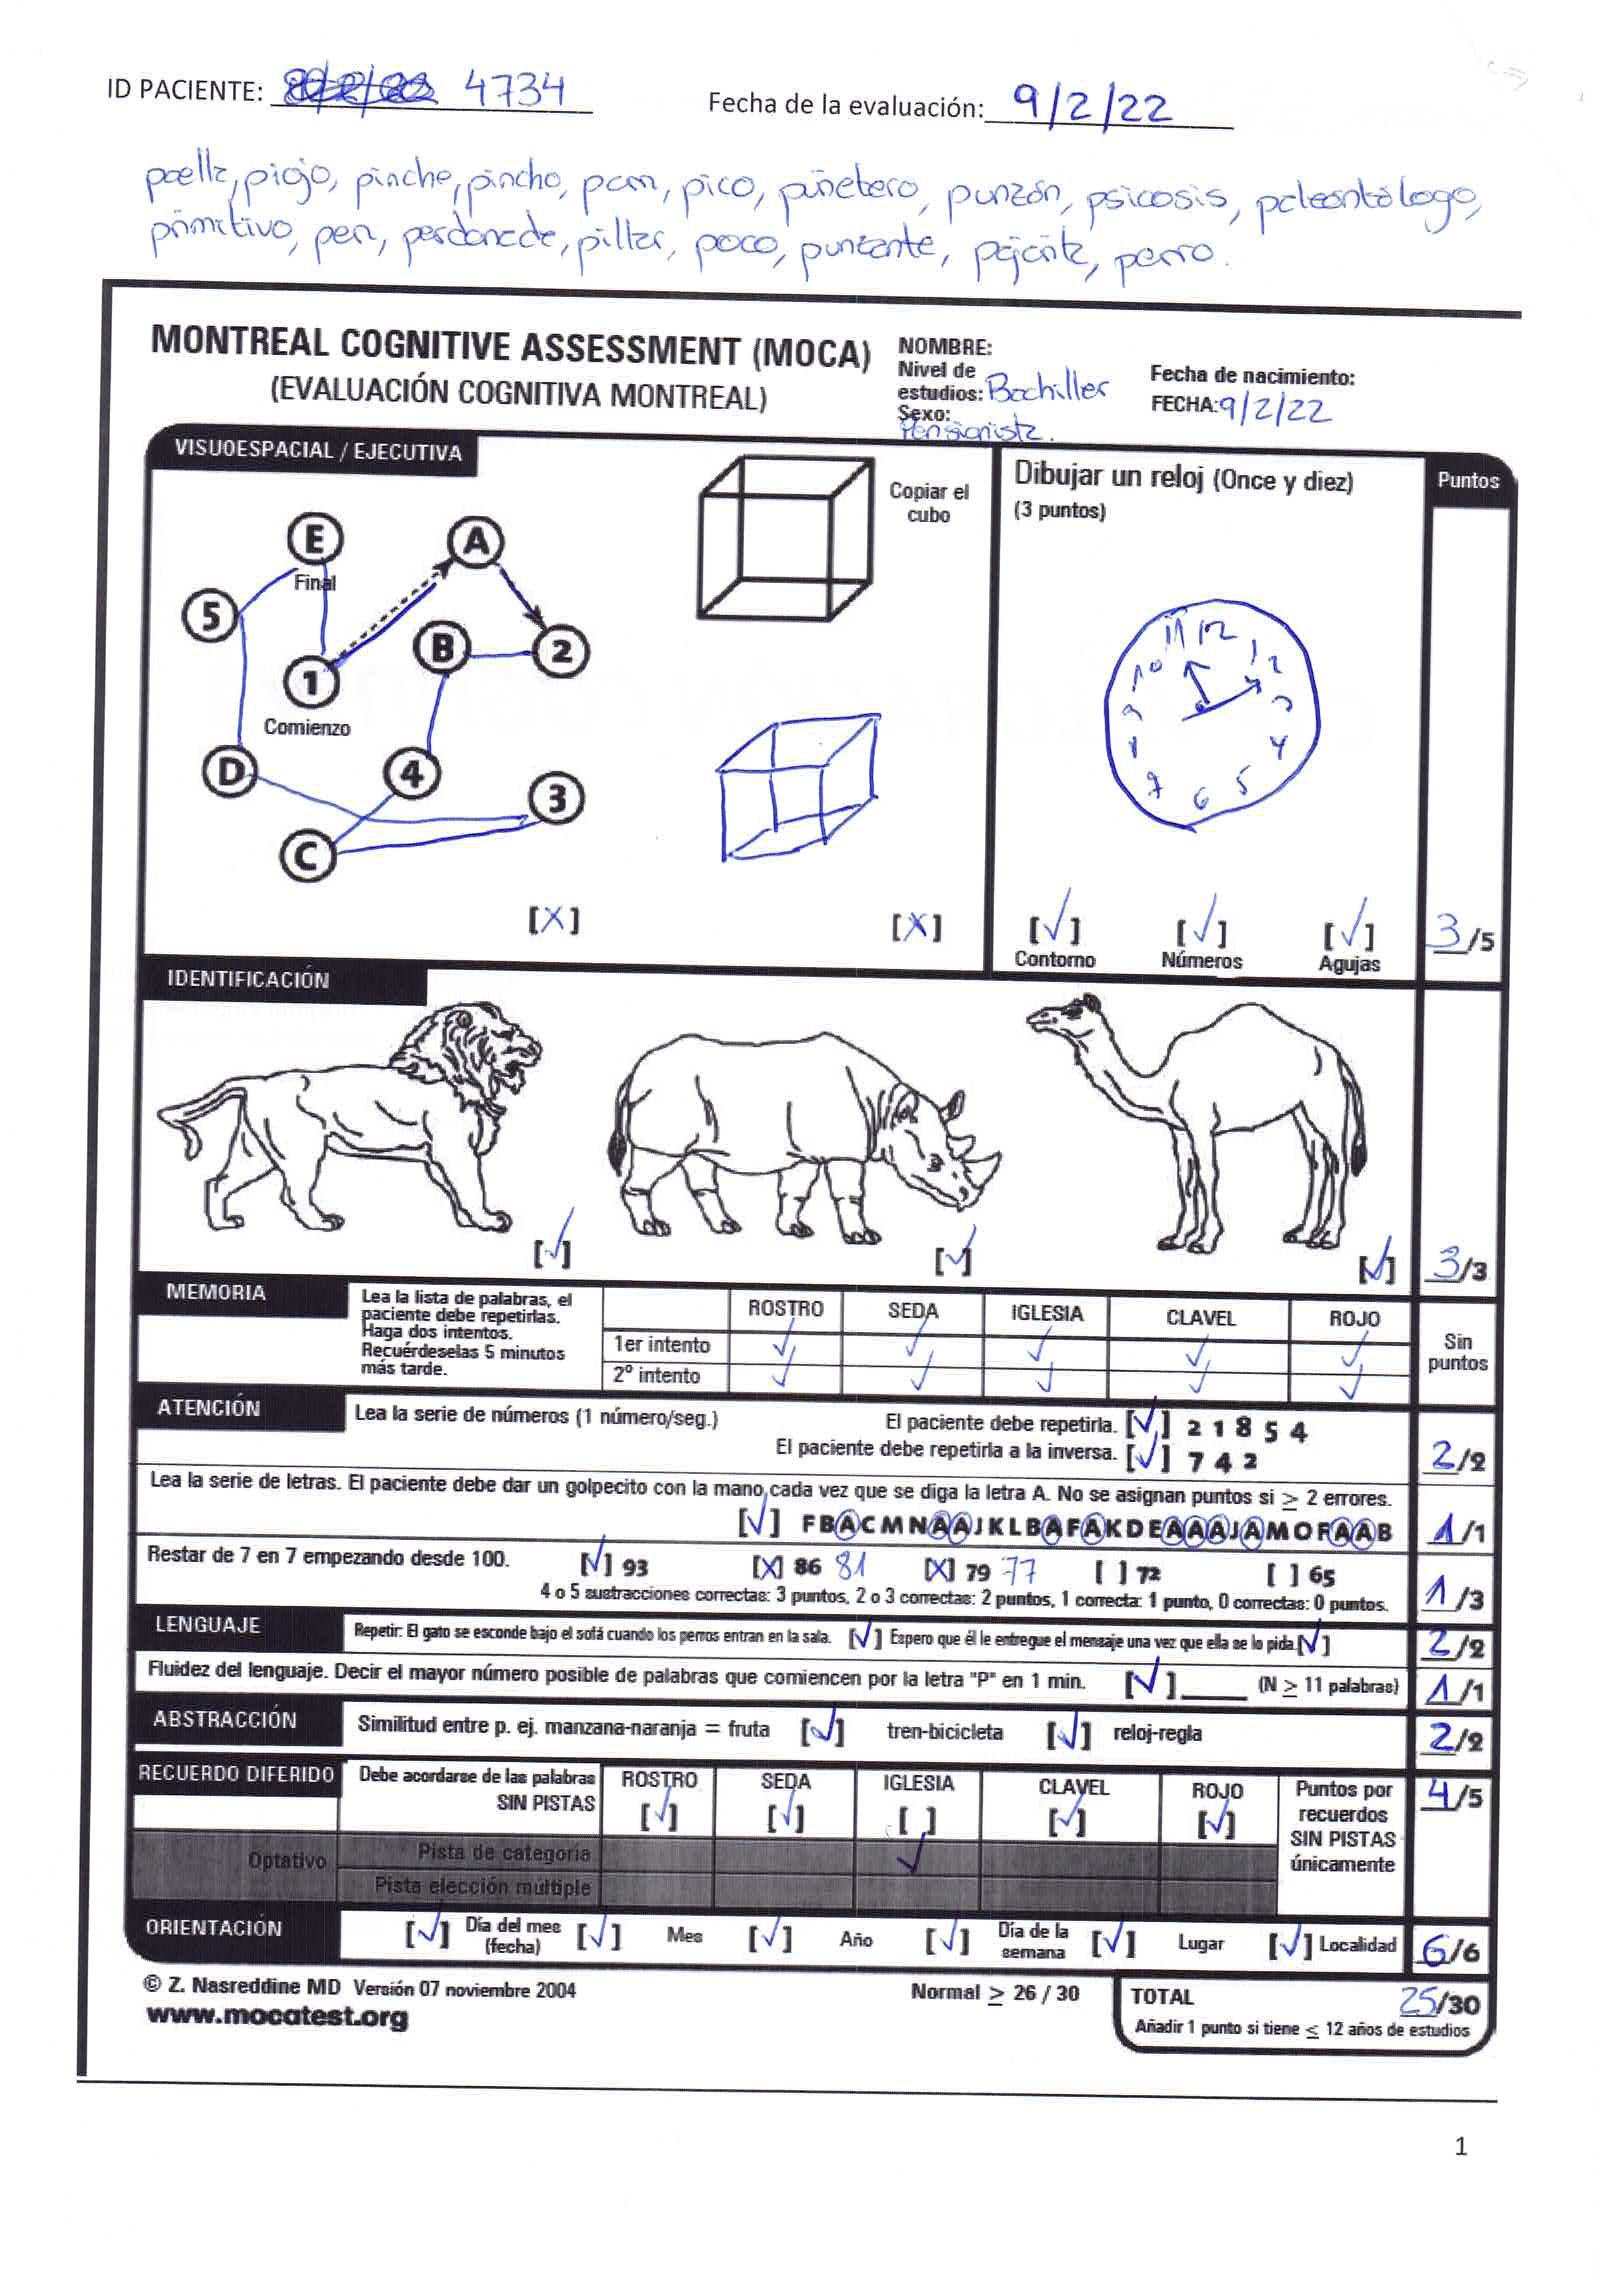 ID PACIENTE: 4734
Fecha de la evaluación: 9/2/22
paella, piojo, pinche, pincho, pan, pico, puñetero, punzón, psicosis, paleontólogo,
primitivo, pen, perdonade, pillar, poco, punzante, perro.
MONTREAL COGNITIVE ASSESSMENT (MOCA)
(EVALUACIÓN COGNITIVA MONTREAL)
NOMBRE:
Nivel de
estudios: Bachiller
Sexo:
Pensionista.
Fecha de nacimiento:
FECHA: 9/2/22
VISUOESPACIAL / EJECUTIVA
E
Final
A
5
B
2
1
Comienzo
D
4
3
C
[X]
Copiar el
cubo
[X]
Dibujar un reloj (Once y diez)
(3 puntos)
11 12 1
10 2
9 3
8 4
7 6 5
[✓] [✓] [✓]
Contorno Números Agujas
Puntos
3/5
IDENTIFICACIÓN
[✓] [✓] [✓]
3/3
MEMORIA
Lea la lista de palabras, el
paciente debe repetirlas.
Haga dos intentos.
Recuérdeselas 5 minutos
más tarde.
ROSTRO SEDA IGLESIA CLAVEL ROJO
1er intento ✓ ✓ ✓ ✓ ✓
2º intento ✓ ✓ ✓ ✓ ✓
Sin
puntos
ATENCIÓN
Lea la serie de números (1 número/seg.)
El paciente debe repetirla. [✓] 2 1 8 5 4
El paciente debe repetirla a la inversa. [✓] 7 4 2
2/2
Lea la serie de letras. El paciente debe dar un golpecito con la mano cada vez que se diga la letra A. No se asignan puntos si ≥ 2 errores.
[✓] F B A C M N A A J K L B A F A K D E A A A J A M O F A A B
1/1
Restar de 7 en 7 empezando desde 100. [✓] 93 [X] 86 81 [X] 79 77 [ ] 72 [ ] 65
4 o 5 sustracciones correctas: 3 puntos, 2 o 3 correctas: 2 puntos, 1 correcta: 1 punto, 0 correctas: 0 puntos.
1/3
LENGUAJE
Repetir: El gato se esconde bajo el sofá cuando los perros entran en la sala. [✓] Espero que él le entregue el mensaje una vez que ella se lo pida. [✓]
2/2
Fluidez del lenguaje. Decir el mayor número posible de palabras que comiencen por la letra "P" en 1 min. [✓] ____ (N ≥ 11 palabras)
1/1
ABSTRACCIÓN
Similitud entre p. ej. manzana-naranja = fruta [✓] tren-bicicleta [✓] reloj-regla
2/2
RECUERDO DIFERIDO
Debe acordarse de las palabras
SIN PISTAS
ROSTRO SEDA IGLESIA CLAVEL ROJO
[✓] [✓] [ ] [✓] [✓]
Puntos por
recuerdos
SIN PISTAS
únicamente
4/5
Optativo
Pista de categoria ✓
Pista elección múltiple
ORIENTACIÓN
[✓] Día del mes
(fecha)
[✓] Mes [✓] Año [✓] Día de la
semana
[✓] Lugar [✓] Localidad
6/6
© Z. Nasreddine MD Versión 07 noviembre 2004
www.mocatest.org
Normal ≥ 26 / 30
TOTAL 25/30
Añadir 1 punto si tiene ≤ 12 años de estudios
1